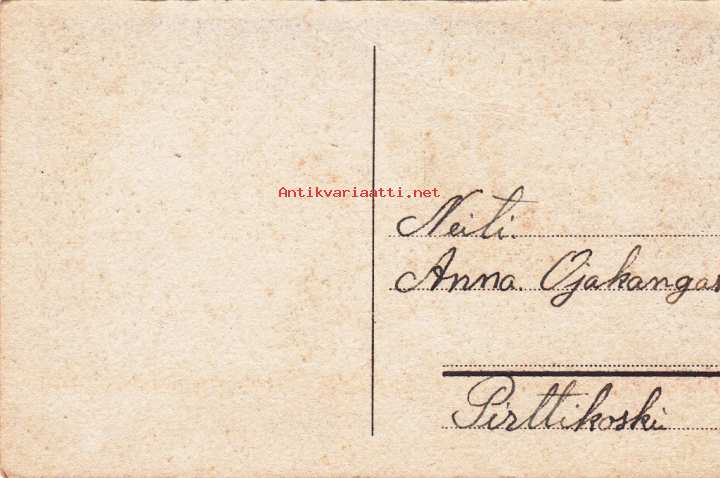 Antikvariaatti.net
Neiti.
Anna. Ojakangas
Pirttikoski